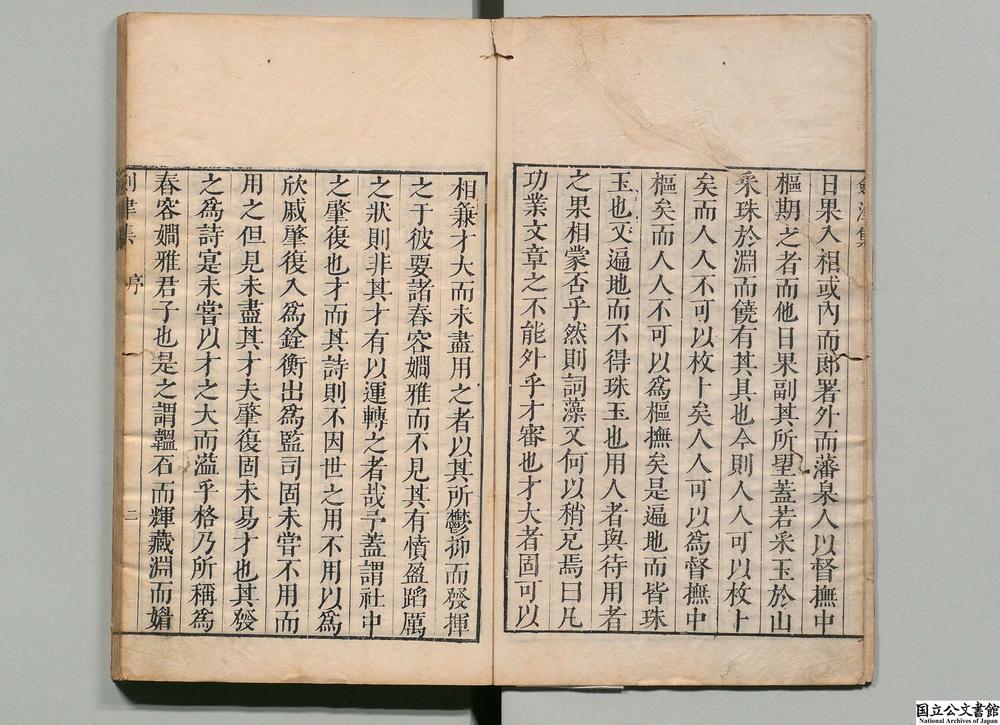 日果入相或內而郎署外而藩臬入以督撫中
樞期之者而他日果副其所望蓋若采玉於山
采珠於淵而饒有其具也今則人人可以枚卜
矣而人人不可以枚卜矣人人可以為督撫中
樞矣而人人不可以為樞撫矣是遍地而皆珠
玉也又遍地而不得珠玉也用人者與待用者
之果相蒙否乎然則詞藻又何以稍克焉曰凡
功業文章之不能外乎才審也才大者固可以
相兼才大而未盡用之者以其所鬱抑而發揮
之于彼要諸春容嫺雅而不見其有憤盈蹈厲
之狀則非其才有以運轉之者哉予蓋謂社中
之肇復也才而其詩則不因世之用不用以為
欣戚肇復入為銓衡出為監司固未嘗不用而
用之但見未盡其才夫肇復固未易才也其發
之為詩寔未嘗以才之大而溢乎格乃所稱為
春容嫺雅君子也是之謂韞石而輝藏淵而媚
集
序
二
国立公文書館
National Archives of Japan